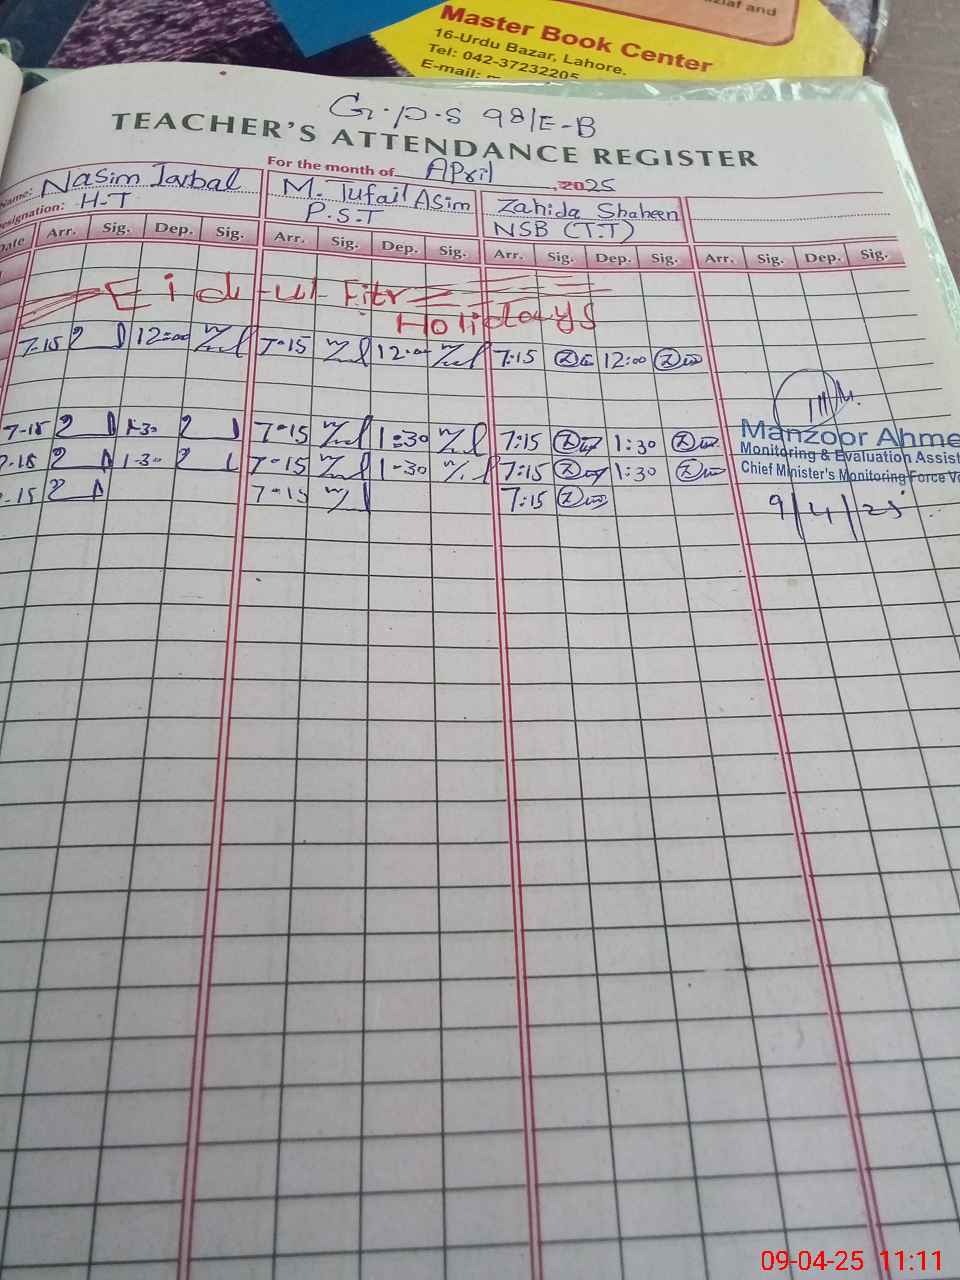 ziaf and
Master Book Center
16-Urdu Bazar, Lahore.
Tel: 042-37232205
E-mail:
G.P.S 98/E-B
TEACHER'S ATTENDANCE REGISTER
For the month of April, 2025
Name: Nasim Iqbal M. Tufail Asim Zahida Shaheen
Designation: H-T P.S.T NSB (T.T)
Date Arr. Sig. Dep. Sig. Arr. Sig. Dep. Sig. Arr. Sig. Dep. Sig. Arr. Sig. Dep. Sig.
Eid-ul-Fitr
Holidays
7-15 12:00 7-15 12:00 7:15 12:00
7-15 1-30 7-15 1:30 7:15 1:30
7-15 1-30 7-15 1-30 7:15 1:30
7-15 7-15 7:15
Manzoor Ahme
Monitoring & Evaluation Assist
Chief Minister's Monitoring Force Ve
9/4/25
09-04-25 11:11